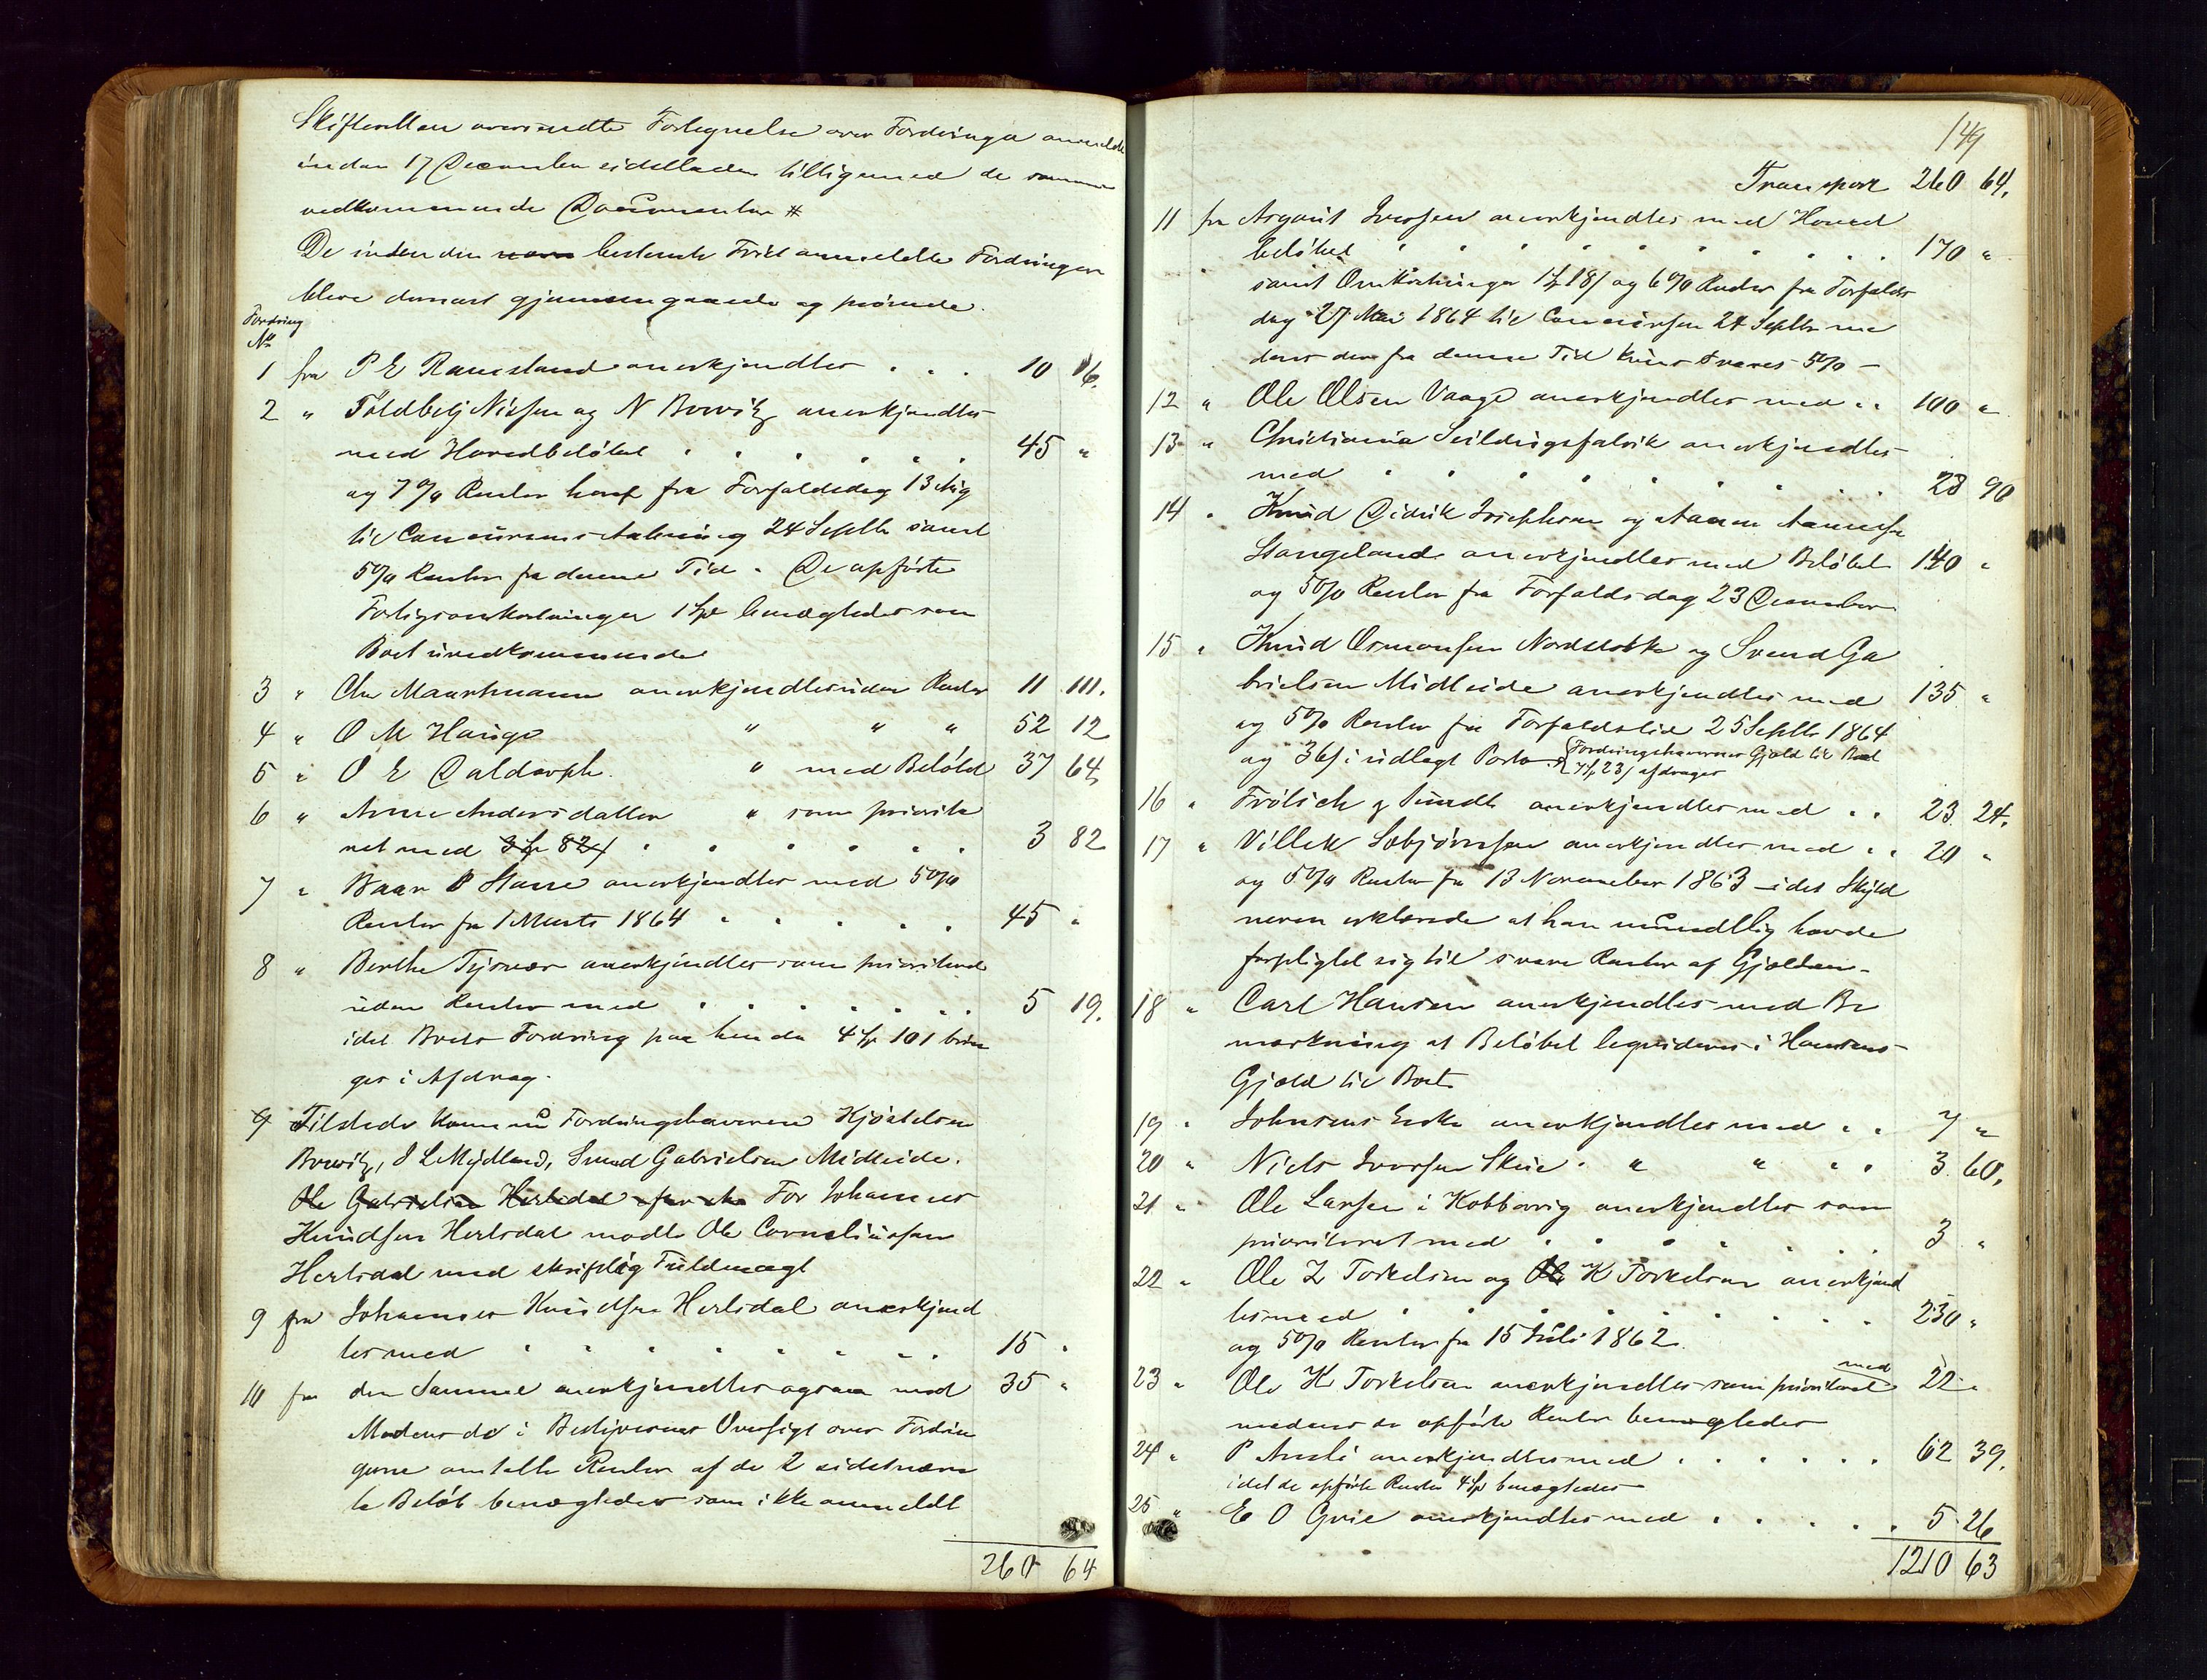 Skifteretten oversendte Fortegnelse over Fordringer anmeldte
inden 17 December sidstleden tilligemed de samme
vedkommende Documenter #
De inden den bestemte Frist anmeldte Fordringer
bleve dernæst gjennemgaaede og prøvede.
Fordring
No
1 fra P E Ramsland anerkjendtes . . . 10 16.
2 " Toldbetj Nissen og N Bowitz anerkjendtes
med Hovedbeløbet . . . . . . 45 "
og 7 % Renter heraf fra Forfaldsdag 13 Aug
til Concursens Aabning 24 Septbr samt
5% Renter fra denne Tid. De opførte
Forligsomkostninger 1 Spd benægtedes som
Boet uvedkommende
3 " Chr Maartmann anerkjendtes uden Renter 11 111.
4 " O M Hauge " " " 52 12
5 " O E Daldorph. " med Beløbet 37 64
6 " Anne Andersdatter " som priorite
ret med 3 Sp 82 . . . . . . 3 82
7 " Baar B Stave anerkjendtes med 5%
Renter fra 1 Marts 1864 . . . . . 45 "
8 " Berthe Tysvær anerkjendtes som prioriteret
uden Renter med . . . . . . 5 19.
idet Boets Fordring paa hende 4 Sp 101 brin
ges i Afdrag.
Tilstede kom nu Fordringshaverne Kjøstelsen
Bowitz, J L Mydland, Svend Gabrielsen Midleide.
Ole Gabrielsen Herlsdal For Johannes
Knudsen Herlsdal mødte Ole Corneliussen
Herlsdal med skriftlig Fuldmagt
9 fra Johannes Knudsen Herlsdal anerkjend
tes med . . . . . . . . 15 "
10 fra den Samme anerkjendtes ogsaa med 35 "
Medens de i Bestyrernes Oversigt over Fordrin
gerne anstalte Renter af de 2 sidstnævn
te Beløb benægtedes som ikke anmeldt
260 64
149
Transport 260 64.
11 fra Asgaut Iversen anerkjendtes med Hoved
beløbet . . . . . . . . . 170 "
samt Omkostninger 1 Sp 18 s og 6% Renter fra Forfalds
dag 27 Mai 1864 til Concursen 24 Septbr me
dens der fra denne Tid kuns svares 5% —
12 " Ole Olsen Vaage anerkjendtes med . . 100 "
13 " Christiania Seildugsfabrik anerkjendtes
med . . . . . . . . 28 90
14 " Knud Didrik Josephsen og Aanen Aanensen
Stangeland anerkjendtes med Beløbet 140 "
og 5% Renter fra Forfaldsdag 23 December
15 " Knud Osmonsen Nordstokke og Svend Ga
brielsen Midleide anerkjendtes med 135 "
og 5% Renter fra Forfaldstid 25 Septbr 1864
og 36 s i udlagt Porto. Fordringshavernes Gjæld til Boet
7 Sp 23 s afdrages
16 " Frölich & Sundt anerkjendtes med . . 23 24.
17 " Villek Sebjørnsen anerkjendtes med . . 20 "
og 5% Renter fra 13 November 1863 – idet Skyld
neren erklærede at han mundtlig havde
forpligtet sig til svare Renter af Gjælden.
18 " Carl Hansen anerkjendtes med Be
mærkning at Beløbet liqvideres i Hansens
Gjæld til Boet
19 " Johnsens Enke anerkjendtes med . . 7 "
20 " Niels Iversen Skeie . " " . . 3 60.
21 " Ole Larsen i Kobbervig anerkjendtes som
prioriteret med . . . . . . . 3 "
22 " Ole Z Torkelsen og K Torkelsen anerkjend
tes med . . . . . . . . 230 "
og 5% Renter fra 15 Juli 1862.
23 " Ole K Torkelsen anerkjendtes som prioriteret med 22 "
medens de opførte Renter benægtedes
24 " P Ansli anerkjendtes med . . . . . . 62 39.
idet de opførte Renter 4 Sp benægtedes
25 " E O Grie anerkjendtes med . . . . . 5 26
1210 63